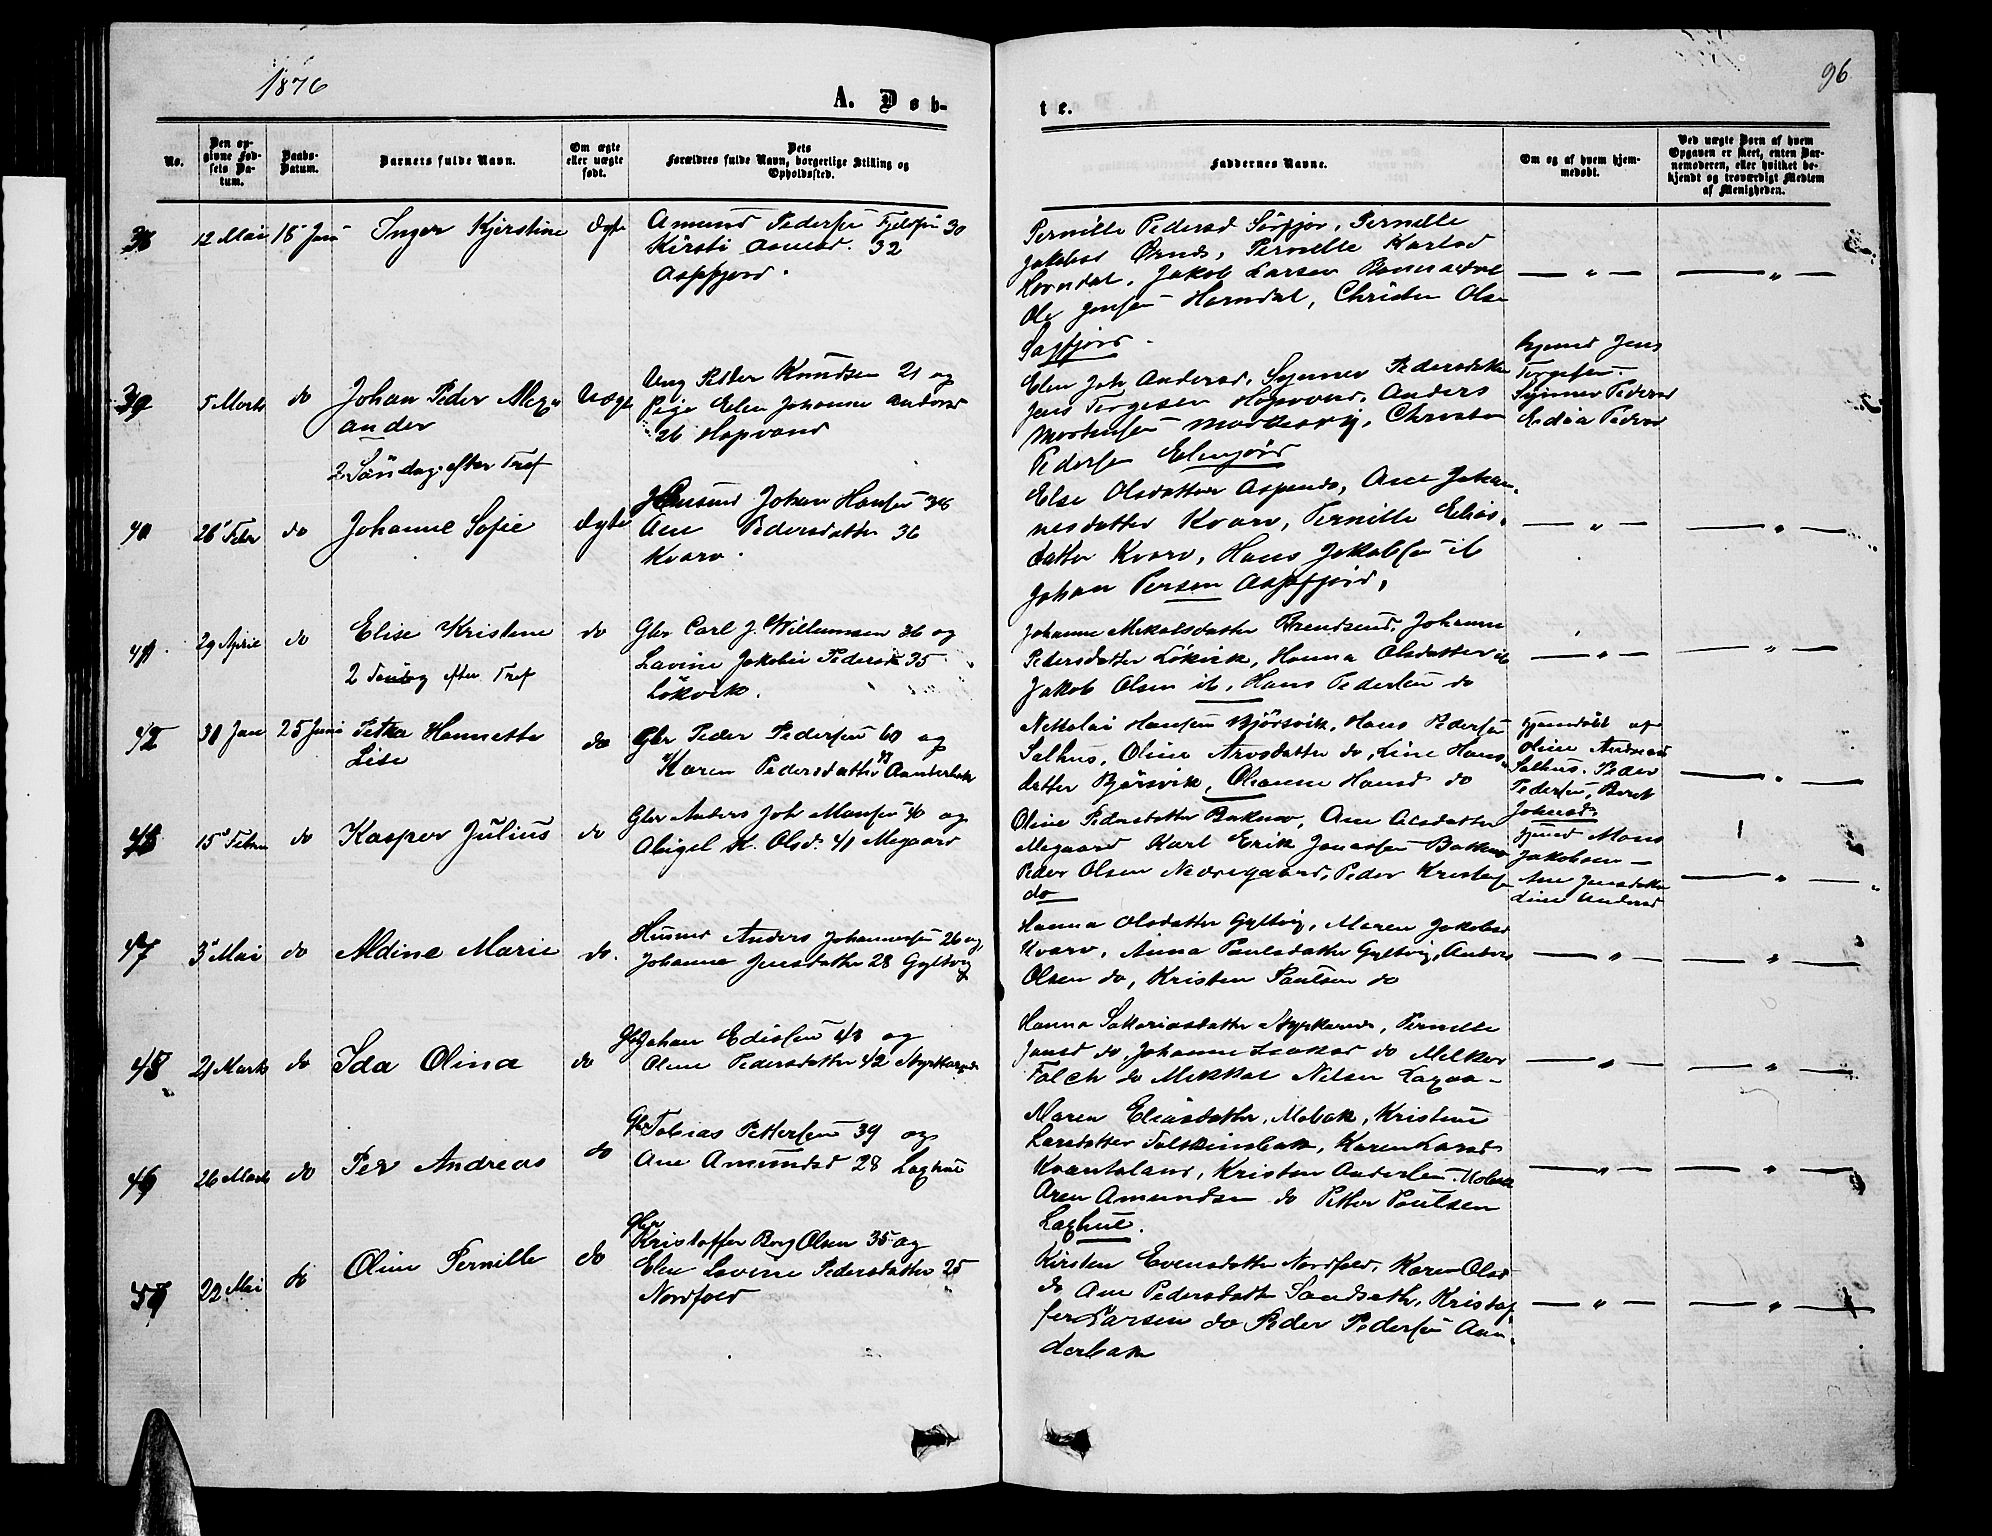 1876
96
A. Døb-
te.
No.
Den opgivne Fødsels Datum.
Daabs-Datum.
Barnets fulde Navn.
Om ægte eller uægte født.
Dets Forældres fulde Navn, borgerlige Stilling og Opholdssted.
Faddernes Navne.
Om og af hvem hjemmedøbt.
Ved uægte Børn af hvem Opgaven er skeet, enten Barnemoderen, eller hvilket bekjendt og troværdigt Medlem af Menigheden.
38 12 Mai 18 Juni Inger Kjerstine Ægte
Amund Pedersen 30
Kirsti 32
Aspfjord.
Pernille Pedersd Sørfjor, Pernille
Jakobsd Pernille Karlsd
Jakob Larsen
Ole Jensen Horndal, Christen Olsen
Sagfjord.
39 5 Marts do Johan Peder Alex-
ander
2 Søndag efter Tref
Uægte
Ung Petter Knudsen 21 og
Pige Elen Johanne Andersd
26 Hopvand
Elen Joh Andersd, Synnev Pedersdatter
Jens Torgersen Hopvand, Anders
Mortensen Christen
Pedersen
Hjemd Jens
Torgersen.
Synnev Pedersd
40 26 Febr do Johanne Sofie Ægte
Johan Hansen 38
Ane Pedersdatter 36
Kvarv.
Else Olsdatter Aspenes, Ane Johan-
nesdatter Kvarv, Pernille Elias-
datter Kvarv, Hans Jakobsen ib
Johan Persen Aspfjord,
41 29 April do Elise Kristine do
2 Søndag efter Tref
Gbr Carl J. Willumsen 36 og
Lavine Jakobine Pedersd 35
Løkvik.
Johanne Mikalsdatter Johanne
Pedersdatter Løkvik, Hanna Olsdatter ib
Jakob Olsen ib, Hans Pedersen do
42 30 Jan 25 Juni Petka Hannette
Lise
do
Gbr Peder Pedersen 60 og
Karen Pedersdatter Aanderbak
Nikolai Hansen Bjørsvik, Hans Pedersen
Salhus, Oline do, Line Hans-
datter Bjørsvik, Oleanne Hansd do
Hjemdøbt af
Oline Andreasd
Salhus. Peder
Pedersen, Beret
Johnsd
43 15 Febr do Kasper Julius do
Gbr Anders Joh Monsen 40 og
Abigel K. Olsd. 41 Megaard
Oline Pedersdatter Bakken, Ane Olsdatter
Megaard Karl Erik Jonassen Bakken
Peder Olsen Nedregaard, Peder Kristensen
do
Hjemd Mons
Jakobsen —
Ane Jensdatter
Line Andersd
47 3 Mai do Aldine Marie do.
Husmd Anders Johannesen 26 og
Johanne Jensdatter 28 Gyltvig
Hanna Olsdatter Gyltvig, Maren Jakobsd
Kvarv, Anna Paulsdatter Gyltvig, Anders
Olsen do, Kristen Paulsen do
48 21 Marts do Ida Olina do
Gbr Johan Edisen 43 og
Oline Pedersdatter 42 Styrkesnes
Hanna Sakariasdatter Styrkesnes, Pernille
Jensd do Johanne Isaksd do Melker
Falch do Mikkal Nilsen Laxaa
49 26 Marts do Per Andreas do
Gbr Tobias Pettersen 39 og
Ane Amundsd 28 Laxhue
Maren Eliasdatter, Mobak, Kristine
Larsdatter Falskinbak, Karen Larsd
Kvantoland, Kristen Andersen Mobak
Aren Amundsen do Petter Poulsen
Laxhue.
50 22 Mai do Oline Pernille do
Gbr
Kristoffer Borg Olsen 35 og
Elen Lovine Pedersdatter 25
Nordfold
Kirsten Evensdatter Nordfold, Karen Olsd
do Ane Pedersdatter Sandseth, Kristof-
fer Larsen do Peder Pedersen Aan-
derbak